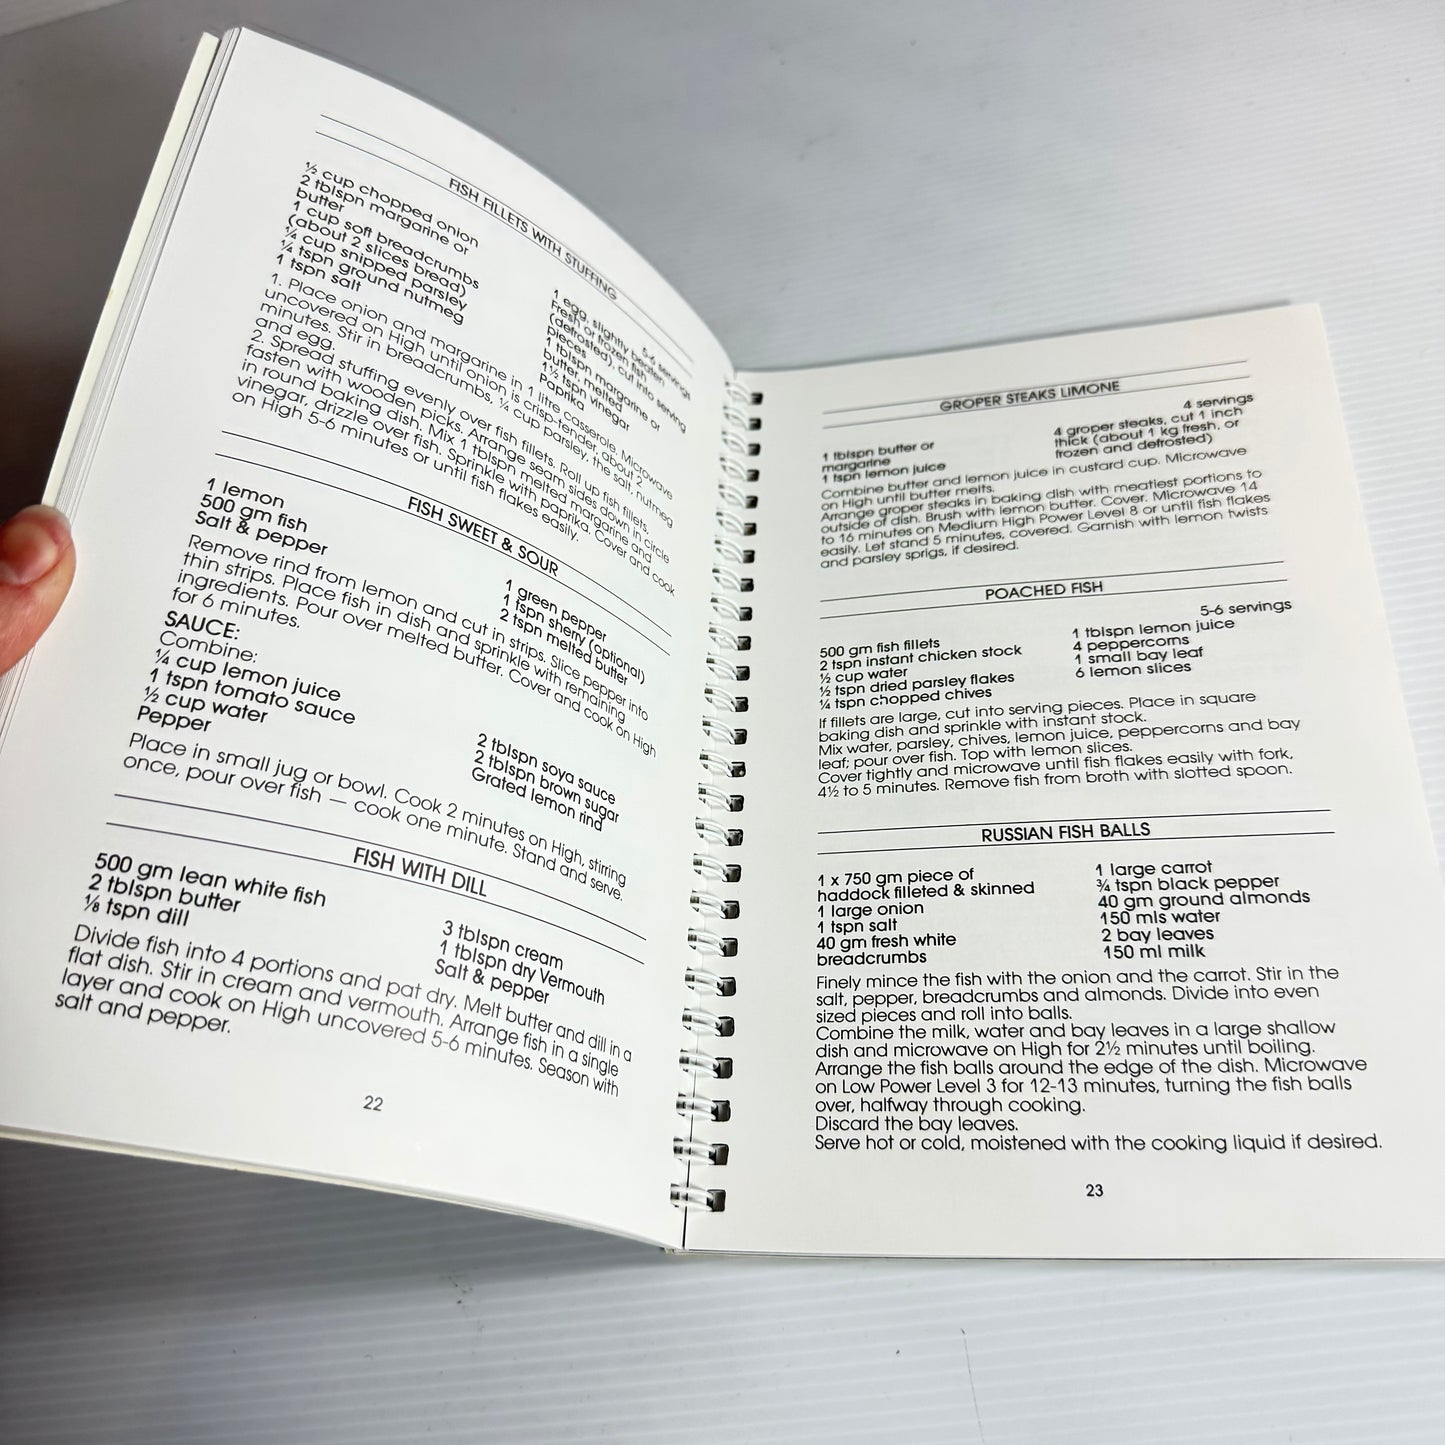 FISH FILLETS WITH STUFFING
5-6 servings
½ cup chopped onion
2 tblspn margarine or
butter
1 cup soft breadcrumbs
(about 2 slices bread)
¼ cup snipped parsley
¼ tspn ground nutmeg
1 tspn salt
1 egg, slightly beaten
Fresh or frozen fish fillets
(defrosted), cut into serving
pieces
1 tblspn margarine or
butter, melted
1½ tspn vinegar
Paprika
1. Place onion and margarine in 1 litre casserole. Microwave
uncovered on High until onion is crisp-tender, about 2
minutes. Stir in breadcrumbs, ¼ cup parsley, the salt, nutmeg
and egg.
2. Spread stuffing evenly over fish fillets. Roll up fish fillets,
fasten with wooden picks. Arrange seam sides down in circle
in round baking dish. Mix 1 tblspn melted margarine and
vinegar, drizzle over fish. Sprinkle with paprika. Cover and cook
on High 5-6 minutes or until fish flakes easily.
FISH SWEET & SOUR
1 lemon
500 gm fish
Salt & pepper
1 green pepper
1 tspn sherry (optional)
2 tspn melted butter
Remove rind from lemon and cut in strips. Slice pepper into
thin strips. Place fish in dish and sprinkle with remaining
ingredients. Pour over melted butter. Cover and cook on High
for 6 minutes.
SAUCE:
Combine:
¼ cup lemon juice
1 tspn tomato sauce
½ cup water
Pepper
2 tblspn soya sauce
2 tblspn brown sugar
Grated lemon rind
Place in small jug or bowl. Cook 2 minutes on High, stirring
once, pour over fish — cook one minute. Stand and serve.
FISH WITH DILL
500 gm lean white fish
2 tblspn butter
⅛ tspn dill
3 tblspn cream
1 tblspn dry Vermouth
Salt & pepper
Divide fish into 4 portions and pat dry. Melt butter and dill in a
flat dish. Stir in cream and vermouth. Arrange fish in a single
layer and cook on High uncovered 5-6 minutes. Season with
salt and pepper.
22
GROPER STEAKS LIMONE
4 servings
1 tblspn butter or
margarine
1 tspn lemon juice
4 groper steaks, cut 1 inch
thick (about 1 kg fresh, or
frozen and defrosted)
Combine butter and lemon juice in custard cup. Microwave
on High until butter melts.
Arrange groper steaks in baking dish with meatiest portions to
outside of dish. Brush with lemon butter. Cover. Microwave 14
to 16 minutes on Medium High Power Level 8 or until fish flakes
easily. Let stand 5 minutes, covered. Garnish with lemon twists
and parsley sprigs, if desired.
POACHED FISH
5-6 servings
500 gm fish fillets
2 tspn instant chicken stock
½ cup water
½ tspn dried parsley flakes
¼ tspn chopped chives
1 tblspn lemon juice
4 peppercorns
1 small bay leaf
6 lemon slices
If fillets are large, cut into serving pieces. Place in square
baking dish and sprinkle with instant stock.
Mix water, parsley, chives, lemon juice, peppercorns and bay
leaf; pour over fish. Top with lemon slices.
Cover tightly and microwave until fish flakes easily with fork,
4½ to 5 minutes. Remove fish from broth with slotted spoon.
RUSSIAN FISH BALLS
1 x 750 gm piece of
haddock filleted & skinned
1 large onion
1 tspn salt
40 gm fresh white
breadcrumbs
1 large carrot
¾ tspn black pepper
40 gm ground almonds
150 mls water
2 bay leaves
150 ml milk
Finely mince the fish with the onion and the carrot. Stir in the
salt, pepper, breadcrumbs and almonds. Divide into even
sized pieces and roll into balls.
Combine the milk, water and bay leaves in a large shallow
dish and microwave on High for 2½ minutes until boiling.
Arrange the fish balls around the edge of the dish. Microwave
on Low Power Level 3 for 12-13 minutes, turning the fish balls
over, halfway through cooking.
Discard the bay leaves.
Serve hot or cold, moistened with the cooking liquid if desired.
23